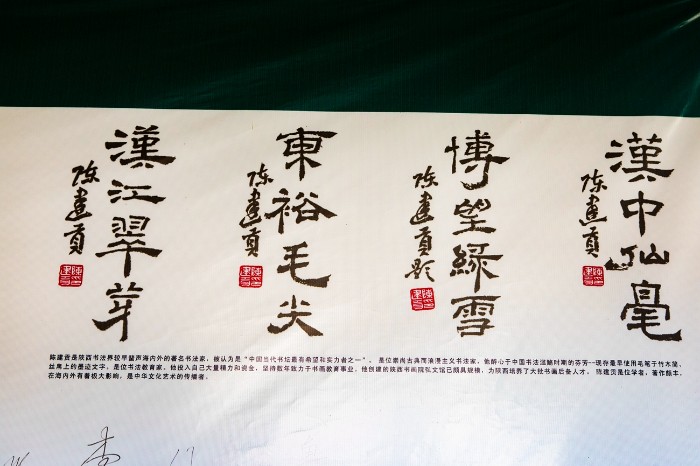 漢中仙毫
陈建貢
博望綠雪
陈建貢题
東裕毛尖
陈建貢
漢江翠芽
陈建貢
陈建贡是陕西书法界较早蜚声海内外的著名书法家，被认为是“中国当代书坛最有希望和实力者之一”。 是位崇尚古典而浪漫主义书法家，他醉心于中国书法滥觞时期的芬芳--现存最早使用毛笔于竹木简、
丝帛上的墨迹文字，是位书法教育家，他投入自己大量精力和资金，坚持数年致力于书画教育事业，他创建的陕西书画院弘文馆已颇具规模，为陕西培养了大批书画后备人才。 陈建贡是位学者，著作颇丰，
在海内外有着极大影响，是中华文化艺术的传播者。